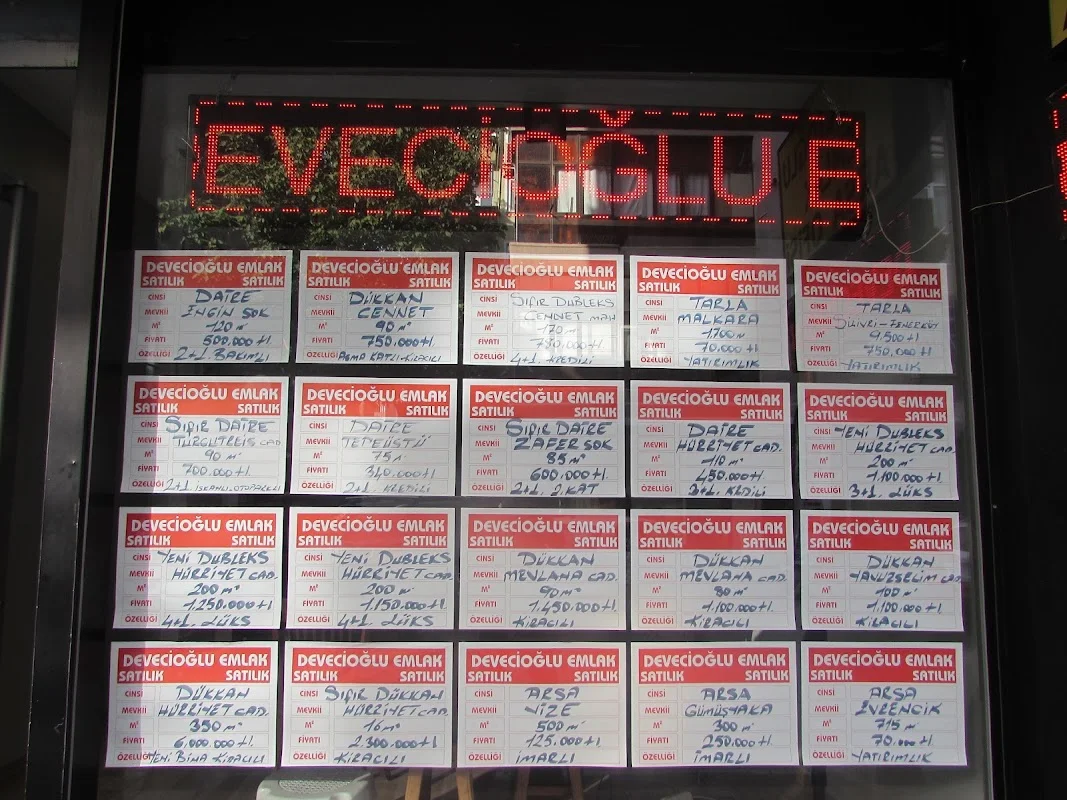 EVECİOĞLU E
DEVECİOĞLU EMLAK
SATILIK SATILIK
CİNSİ DAİRE
MEVKİİ ENGİN SOK
M² 120 m²
FİYATI 500.000 tl
ÖZELLİĞİ 2+1 BAKIMLI
DEVECİOĞLU EMLAK
SATILIK SATILIK
CİNSİ DÜKKAN
MEVKİİ CENNET
M² 90 m²
FİYATI 750.000 tl
ÖZELLİĞİ ASMA KATLI-KİRACILI
DEVECİOĞLU EMLAK
SATILIK SATILIK
CİNSİ SIFIR DUBLEKS
MEVKİİ CENNET MAH
M² 170 m
FİYATI 780.000 tl
ÖZELLİĞİ 4+1. KREDİLİ
DEVECİOĞLU EMLAK
SATILIK SATILIK
CİNSİ TARLA
MEVKİİ MALKARA
M² 1700 m²
FİYATI 70.000 tl
ÖZELLİĞİ YATIRIMLIK
DEVECİOĞLU EMLAK
SATILIK SATILIK
CİNSİ TARLA
MEVKİİ SİLİVRİ-FENERKÖY
M² 9.500 tl
FİYATI 750.000 tl
ÖZELLİĞİ YATIRIMLIK
DEVECİOĞLU EMLAK
SATILIK SATILIK
CİNSİ SIFIR DAİRE
MEVKİİ TURGUTREİS CAD
M² 90 m²
FİYATI 700.000 tl
ÖZELLİĞİ 2+1 İSKANLI.OTOPARKLI
DEVECİOĞLU EMLAK
SATILIK SATILIK
CİNSİ DAİRE
MEVKİİ TEPEÜSTÜ
M² 75 m
FİYATI 340.000 tl
ÖZELLİĞİ 2+1. KREDİLİ
DEVECİOĞLU EMLAK
SATILIK SATILIK
CİNSİ SIFIR DAİRE
MEVKİİ ZAFER SOK
M² 85 m²
FİYATI 600.000 tl
ÖZELLİĞİ 2+1. 2.KAT
DEVECİOĞLU EMLAK
SATILIK SATILIK
CİNSİ DAİRE
MEVKİİ HÜRRİYET CAD.
M² 110 m²
FİYATI 450.000 tl
ÖZELLİĞİ 3+1. KREDİLİ
DEVECİOĞLU EMLAK
SATILIK SATILIK
CİNSİ YENİ DUBLEKS
MEVKİİ HÜRRİYET CAD.
M² 200 m²
FİYATI 1.100.000 tl
ÖZELLİĞİ 3+1. LÜKS
DEVECİOĞLU EMLAK
SATILIK SATILIK
CİNSİ YENİ DUBLEKS
MEVKİİ HÜRRİYET CAD.
M² 200 m²
FİYATI 1.250.000 tl
ÖZELLİĞİ 4+1. LÜKS
DEVECİOĞLU EMLAK
SATILIK SATILIK
CİNSİ YENİ DUBLEKS
MEVKİİ HÜRRİYET CAD.
M² 200 m²
FİYATI 1.150.000 tl
ÖZELLİĞİ 4+1. LÜKS
DEVECİOĞLU EMLAK
SATILIK SATILIK
CİNSİ DÜKKAN
MEVKİİ MEVLANA CAD.
M² 90 m²
FİYATI 1.450.000 tl
ÖZELLİĞİ KİRACILI
DEVECİOĞLU EMLAK
SATILIK SATILIK
CİNSİ DÜKKAN
MEVKİİ MEVLANA CAD.
M² 80 m²
FİYATI 1.100.000 tl
ÖZELLİĞİ KİRACILI
DEVECİOĞLU EMLAK
SATILIK SATILIK
CİNSİ DÜKKAN
MEVKİİ YAVUZSELİM CAD.
M² 100 m²
FİYATI 1.100.000 tl
ÖZELLİĞİ KİRACILI
DEVECİOĞLU EMLAK
SATILIK SATILIK
CİNSİ DÜKKAN
MEVKİİ HÜRRİYET CAD.
M² 350 m²
FİYATI 6.000.000 tl
ÖZELLİĞİ YENİ BİNA KİRACILI
DEVECİOĞLU EMLAK
SATILIK SATILIK
CİNSİ SIFIR DÜKKAN
MEVKİİ HÜRRİYET CAD.
M² 16 m²
FİYATI 2.300.000 tl
ÖZELLİĞİ KİRACILI
DEVECİOĞLU EMLAK
SATILIK SATILIK
CİNSİ ARSA
MEVKİİ VİZE
M² 500 m²
FİYATI 125.000 tl
ÖZELLİĞİ İMARLI
DEVECİOĞLU EMLAK
SATILIK SATILIK
CİNSİ ARSA
MEVKİİ GÜMÜŞYAKA
M² 300 m²
FİYATI 250.000 tl
ÖZELLİĞİ İMARLI
DEVECİOĞLU EMLAK
SATILIK SATILIK
CİNSİ ARSA
MEVKİİ EVRENCİK
M² 715 m²
FİYATI 70.000 tl
ÖZELLİĞİ YATIRIMLIK